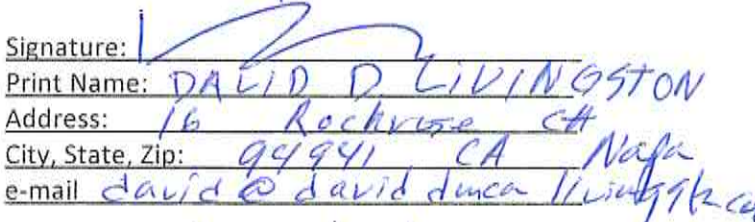 Signature:
Print Name: DAVID D. LIVINGSTON
Address: 16 Rockrose Ct
City, State, Zip: 94941 CA Napa
e-mail david @ david